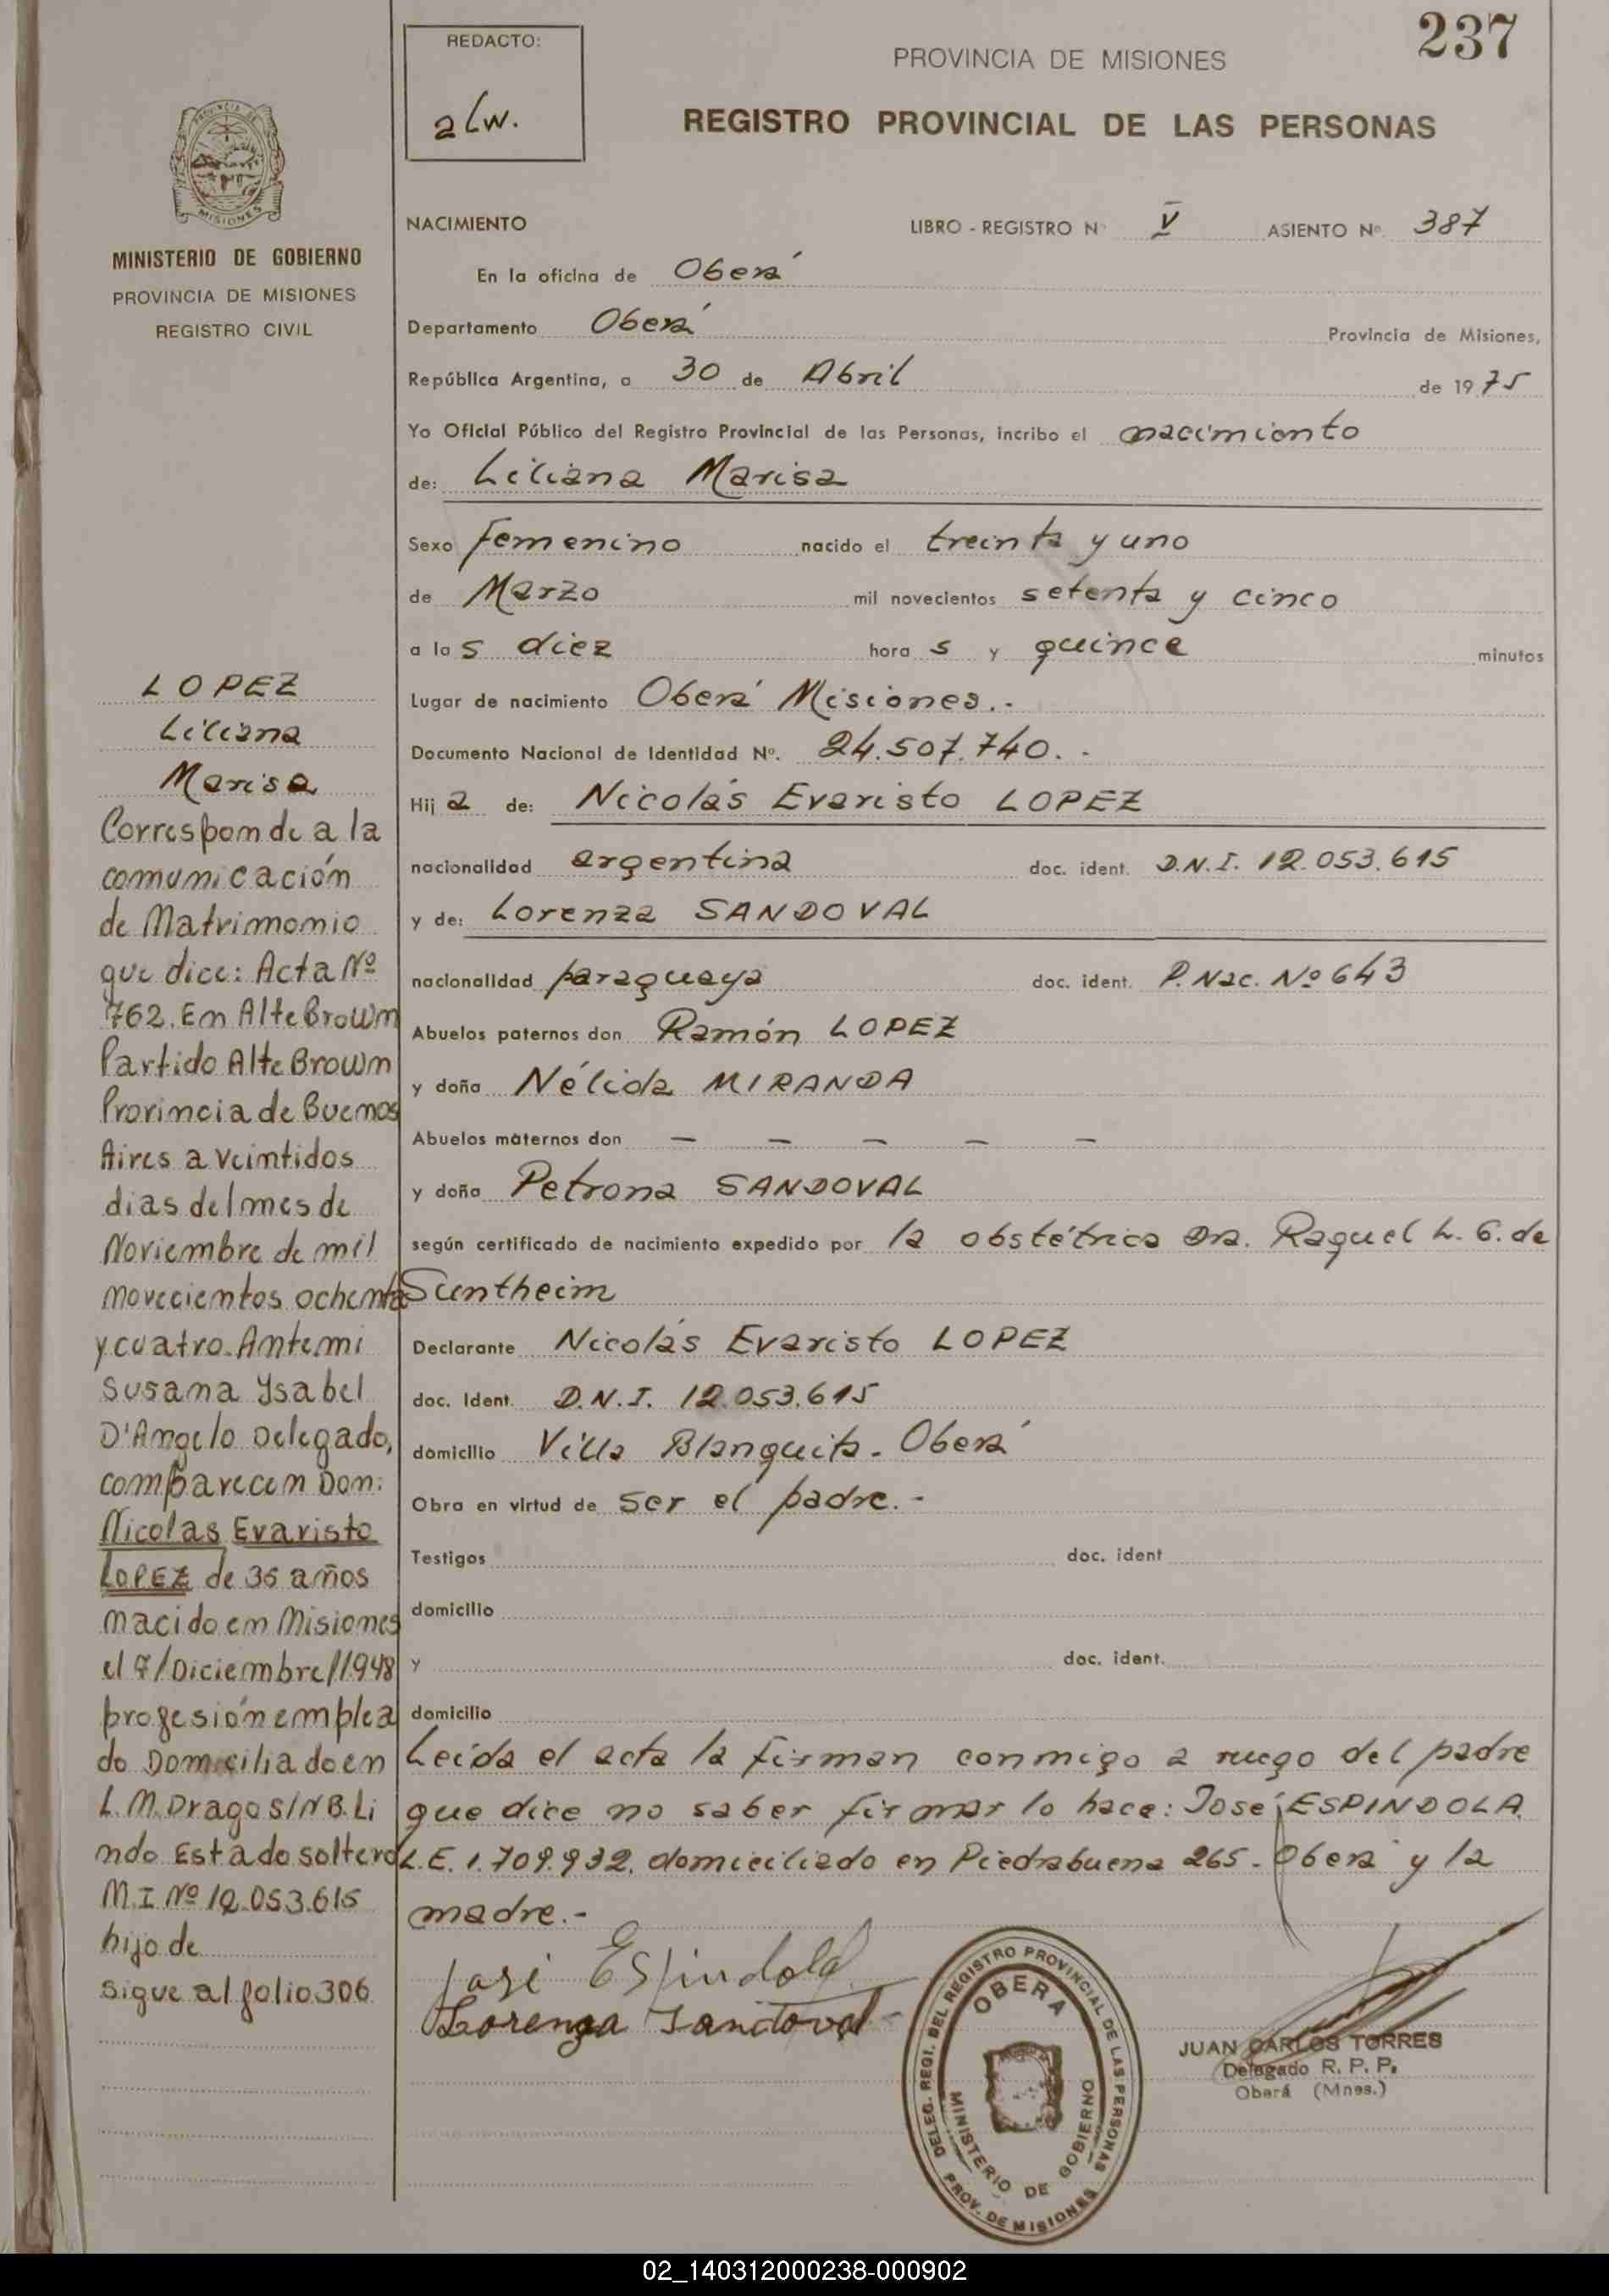 237
REDACTO:
alw.
PROVINCIA DE MISIONES
REGISTRO PROVINCIAL DE LAS PERSONAS
PROVINCIA DE
MISIONES
MINISTERIO DE GOBIERNO
PROVINCIA DE MISIONES
REGISTRO CIVIL
LOPEZ
Liliana
Marisa
Corresponde a la
comunicación
de Matrimonio
que dice: Acta Nº
762. En Alte Brown
Partido Alte Brown
Provincia de Buenos
Aires a veintidos
dias del mes de
Noviembre de mil
novecientos ochenta
y cuatro. Ante mi
Susana Ysabel
D'Angelo Delegado,
comparecen Don:
Nicolas Evaristo
LOPEZ de 36 años
nacido en Misiones
el 7/Diciembre/1948
profesión emplea
do Domiciliado en
L.M. Drago S/N B. Li
ndo Estado soltero
M.I Nº 12.053.615
hijo de
sigue al folio 306
NACIMIENTO LIBRO - REGISTRO Nº V ASIENTO Nº 387
En la oficina de Oberá
Departamento Oberá Provincia de Misiones,
República Argentina, a 30 de Abril de 1975
Yo Oficial Público del Registro Provincial de las Personas, incribo el nacimiento
de: Liliana Marisa
Sexo femenino nacido el treinta y uno
de Marzo mil novecientos setenta y cinco
a las diez horas y quince minutos
Lugar de nacimiento Oberá Misiones.-
Documento Nacional de Identidad Nº. 24.507.740.-
Hija de: Nicolás Evaristo LOPEZ
nacionalidad argentina doc. ident. D.N.I. 12.053.615
y de: Lorenza SANDOVAL
nacionalidad paraguaya doc. ident. P. Nac. Nº 643
Abuelos paternos don Ramón LOPEZ
y doña Nélida MIRANDA
Abuelos maternos don — — — — —
y doña Petrona SANDOVAL
según certificado de nacimiento expedido por la obstétrica Dra. Raquel L. G. de
Suntheim
Declarante Nicolás Evaristo LOPEZ
doc. Ident. D.N.I. 12.053.615
domicilio Villa Blanquita - Oberá
Obra en virtud de ser el padre.-
Testigos doc. ident
domicilio
y doc. ident.
domicilio
Leída el acta la firman conmigo a ruego del padre
que dice no saber firmar lo hace: José ESPINDOLA
L.E. 1.709.932, domiciliado en Piedrabuena 265 - Oberá y la
madre.-
José Espindola
Lorenza Sandoval
DELEG. REGI. DEL REGISTRO PROVINCIAL DE LAS PERSONAS
OBERA
MINISTERIO DE GOBIERNO
PROV. DE MISIONES
JUAN CARLOS TORRES
Delegado R. P. P.
Oberá (Mnes.)
02_140312000238-000902